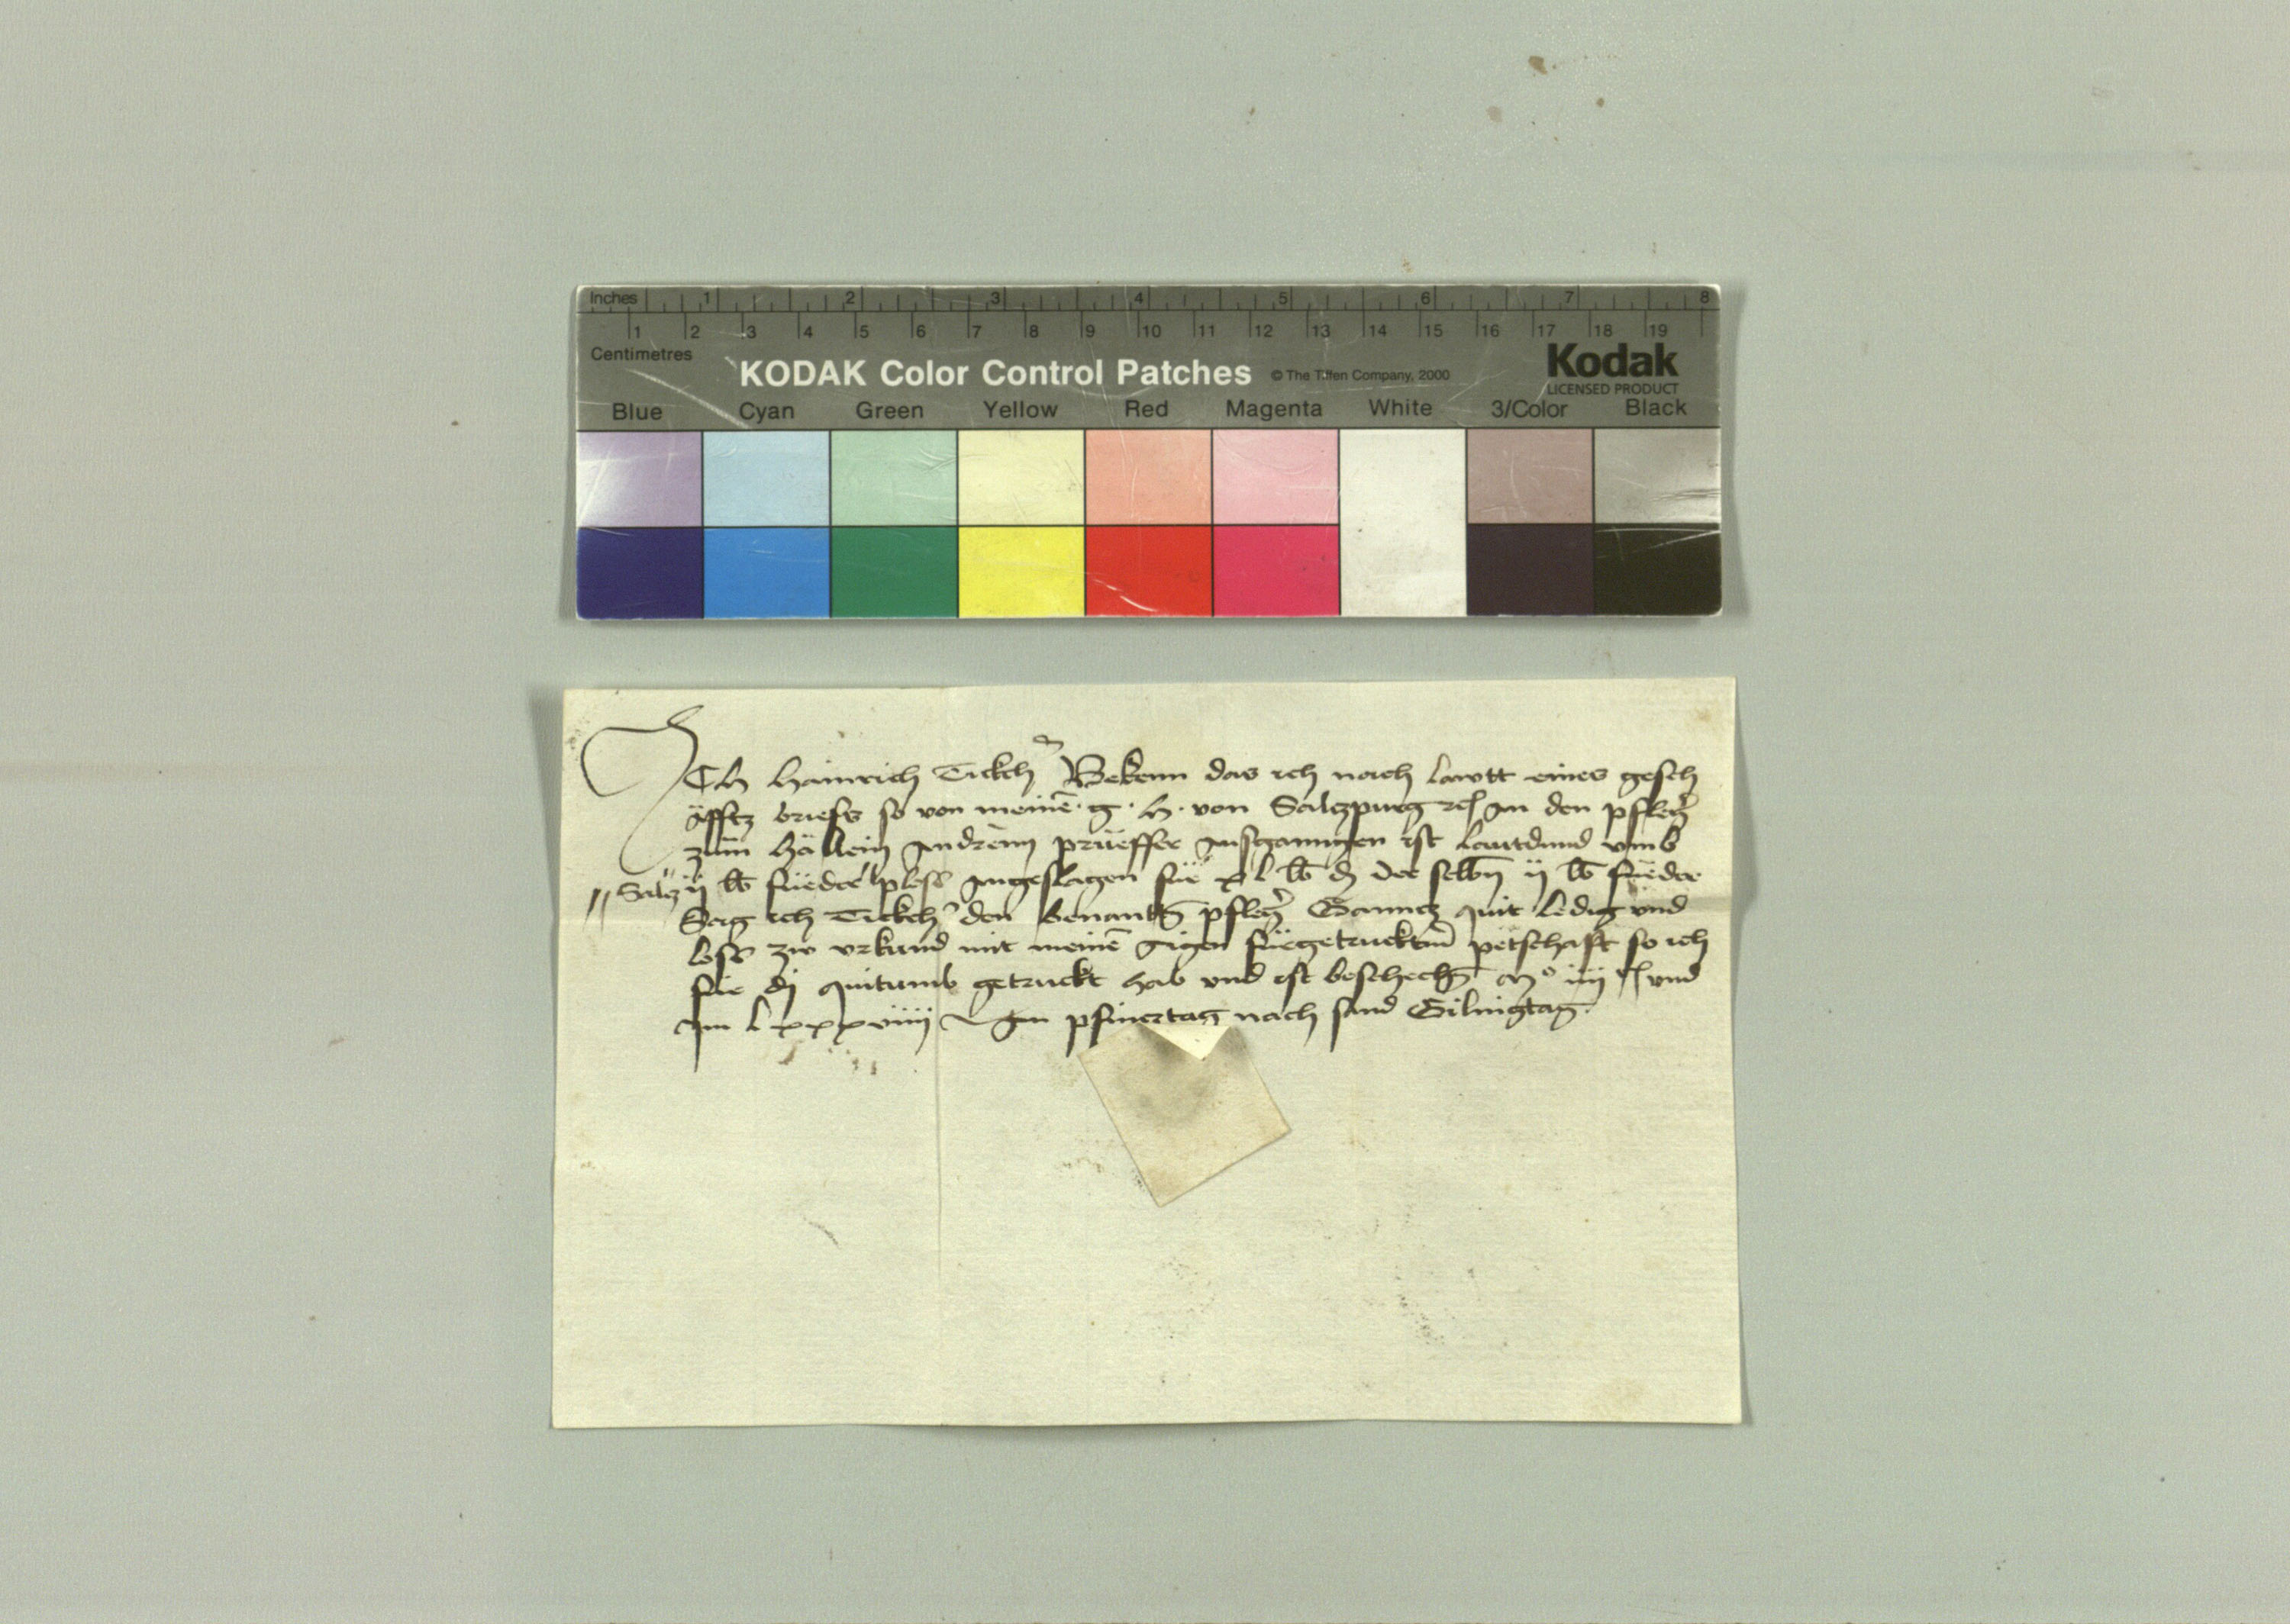 Inches 1 2 3 4 5 6 7 8
1 2 3 4 5 6 7 8 9 10 11 12 13 14 15 16 17 18 19
Centimetres
KODAK Color Control Patches © The Tiffen Company, 2000 Kodak
LICENSED PRODUCT
Blue Cyan Green Yellow Red Magenta White 3/Color Black
ICh Hainrich Tickch Bekenn das ich nach lawtt eines gesch
äfftz briefs so von meinē g. h. von Salczpurg an den pflegʼ
zum Hällein andrenn prüeffer ausganngen ist lauttdund vmb
Salz ij füeder angeslagen für xl der selbn̄ ij füeder
Sag ich Tickchʼ den benantn̄ pflegʼ Ganncz quit ledig vnd
los zw vrkund mit meinē aigen fürgetrucktm̄ petschaft so ich
für dj quitumb getruckt hab vnd ist beschechn̄ Mº iiij vnd
Im lxxxviiij Am pfincztag nach sand Gilingtag